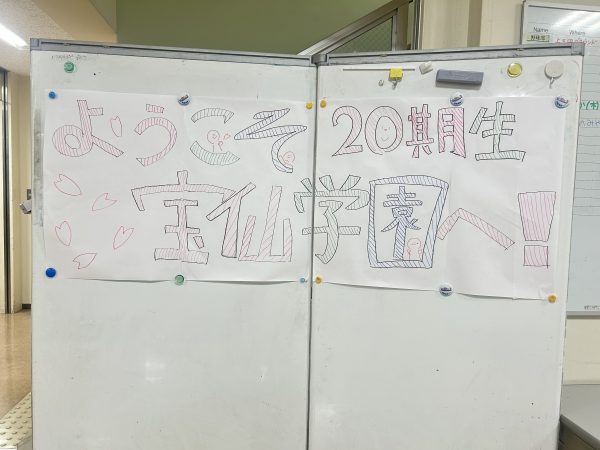 ようこそ 20期生
宝仙学園へ!
Name Where